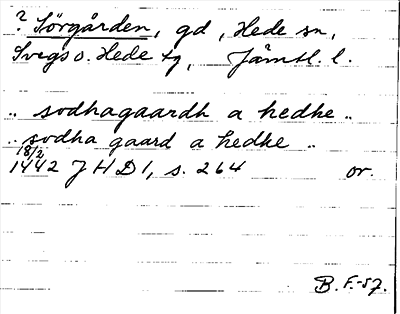 ? Sörgården, gd, Hede sn,
Svegs o. Hede tg, Jämtl. l.
.. sodhagaardh a hedhe ..
.. sodha gaard a hedke ..
18/2
1442 JHD 1, s. 264 or.
B. F.-57.